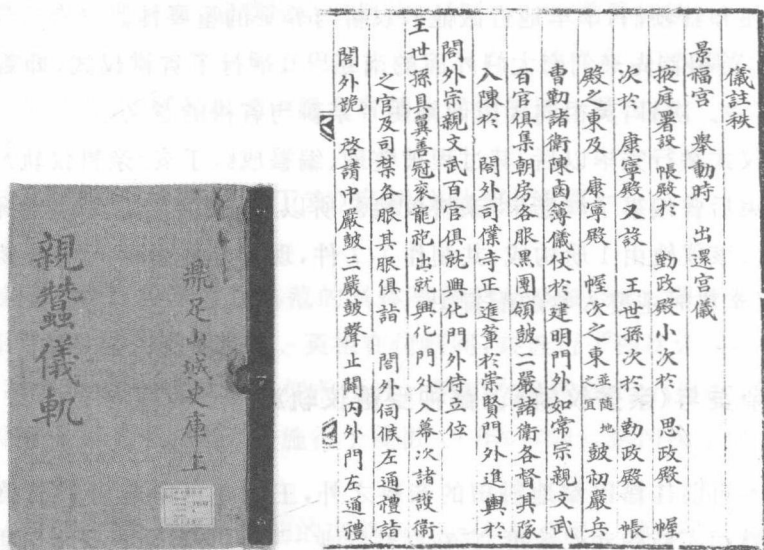 儀註秩
景福宮 舉動時 出還宮儀
掖庭署設帳殿於 勤政殿小次於 思政殿 幄
次於 康寧殿又設 王世孫次於 勤政殿 帳
殿之東及 康寧殿 幄次之東並隨地之宜 鼓初嚴兵
曹勒諸衛陳鹵簿儀仗於建明門外如常宗親文武
百官俱集朝房各服黑團領鼓二嚴諸衛各督其隊
入陳於 閤外司僕寺正進輦於崇賢門外進輿於
閤外宗親文武百官俱就興化門外侍立位
王世孫具翼善冠袞龍袍出就興化門外入幕次諸護衛
之官及司禁各服其服俱詣 閤外伺候左通禮詣
閤外跪 啓請中嚴鼓三嚴鼓聲止闢內外門左通禮
親蠶儀軌
鼎足山城史庫上